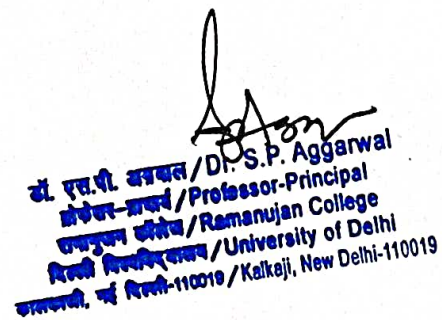 डॉ. एस.पी. अग्रवाल/Dr. S.P. Aggarwal
प्रोफेसर-प्राचार्य/Professor-Principal
रामानुजन कॉलेज/Ramanujan College
दिल्ली विश्वविद्यालय/University of Delhi
कालकाजी, नई दिल्ली-110019/Kalkaji, New Delhi-110019